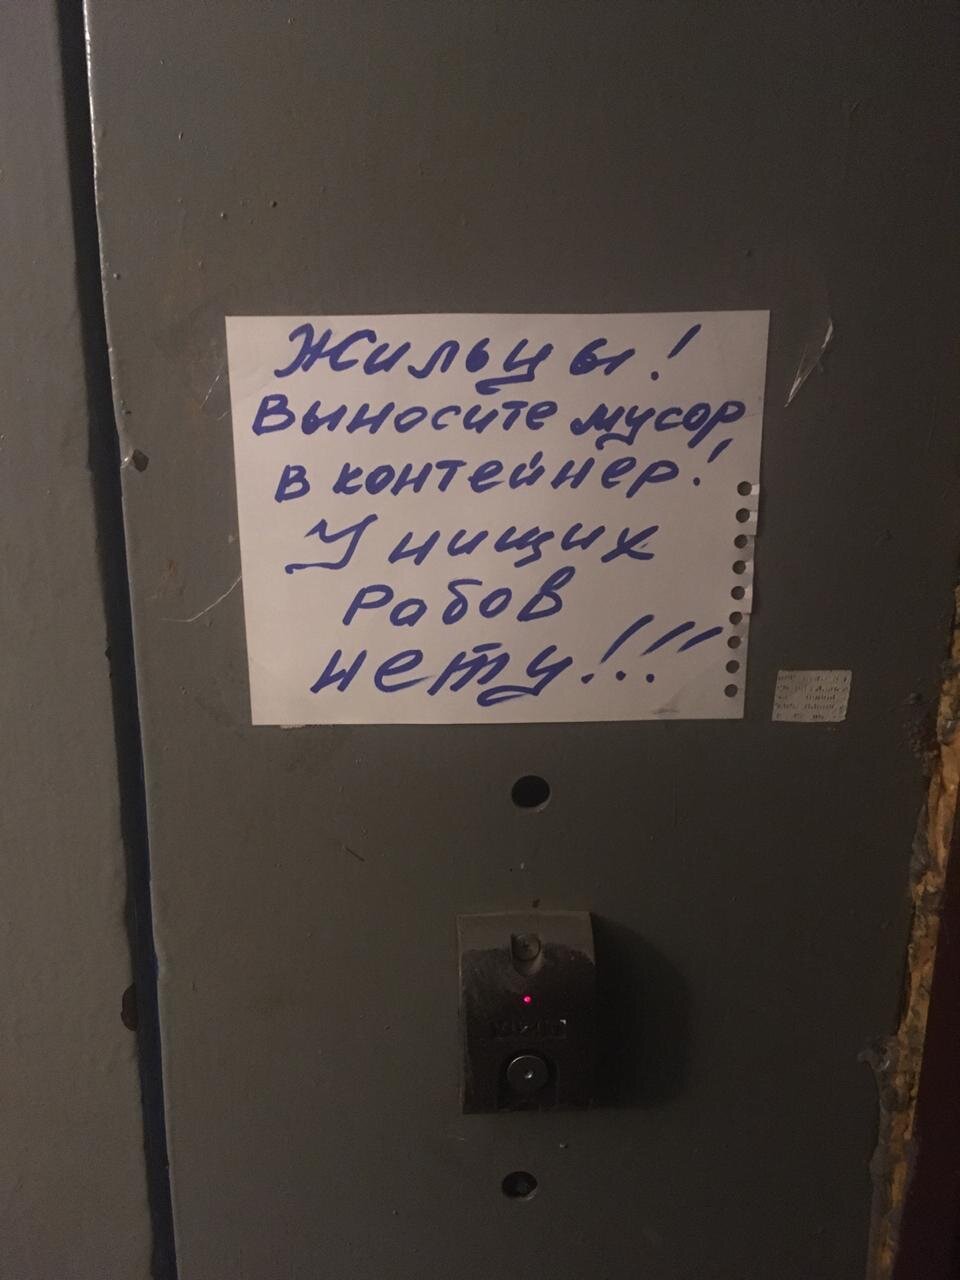 Жильцы!
Выносите мусор
в контейнер!
У нищих
рабов
нету!!!